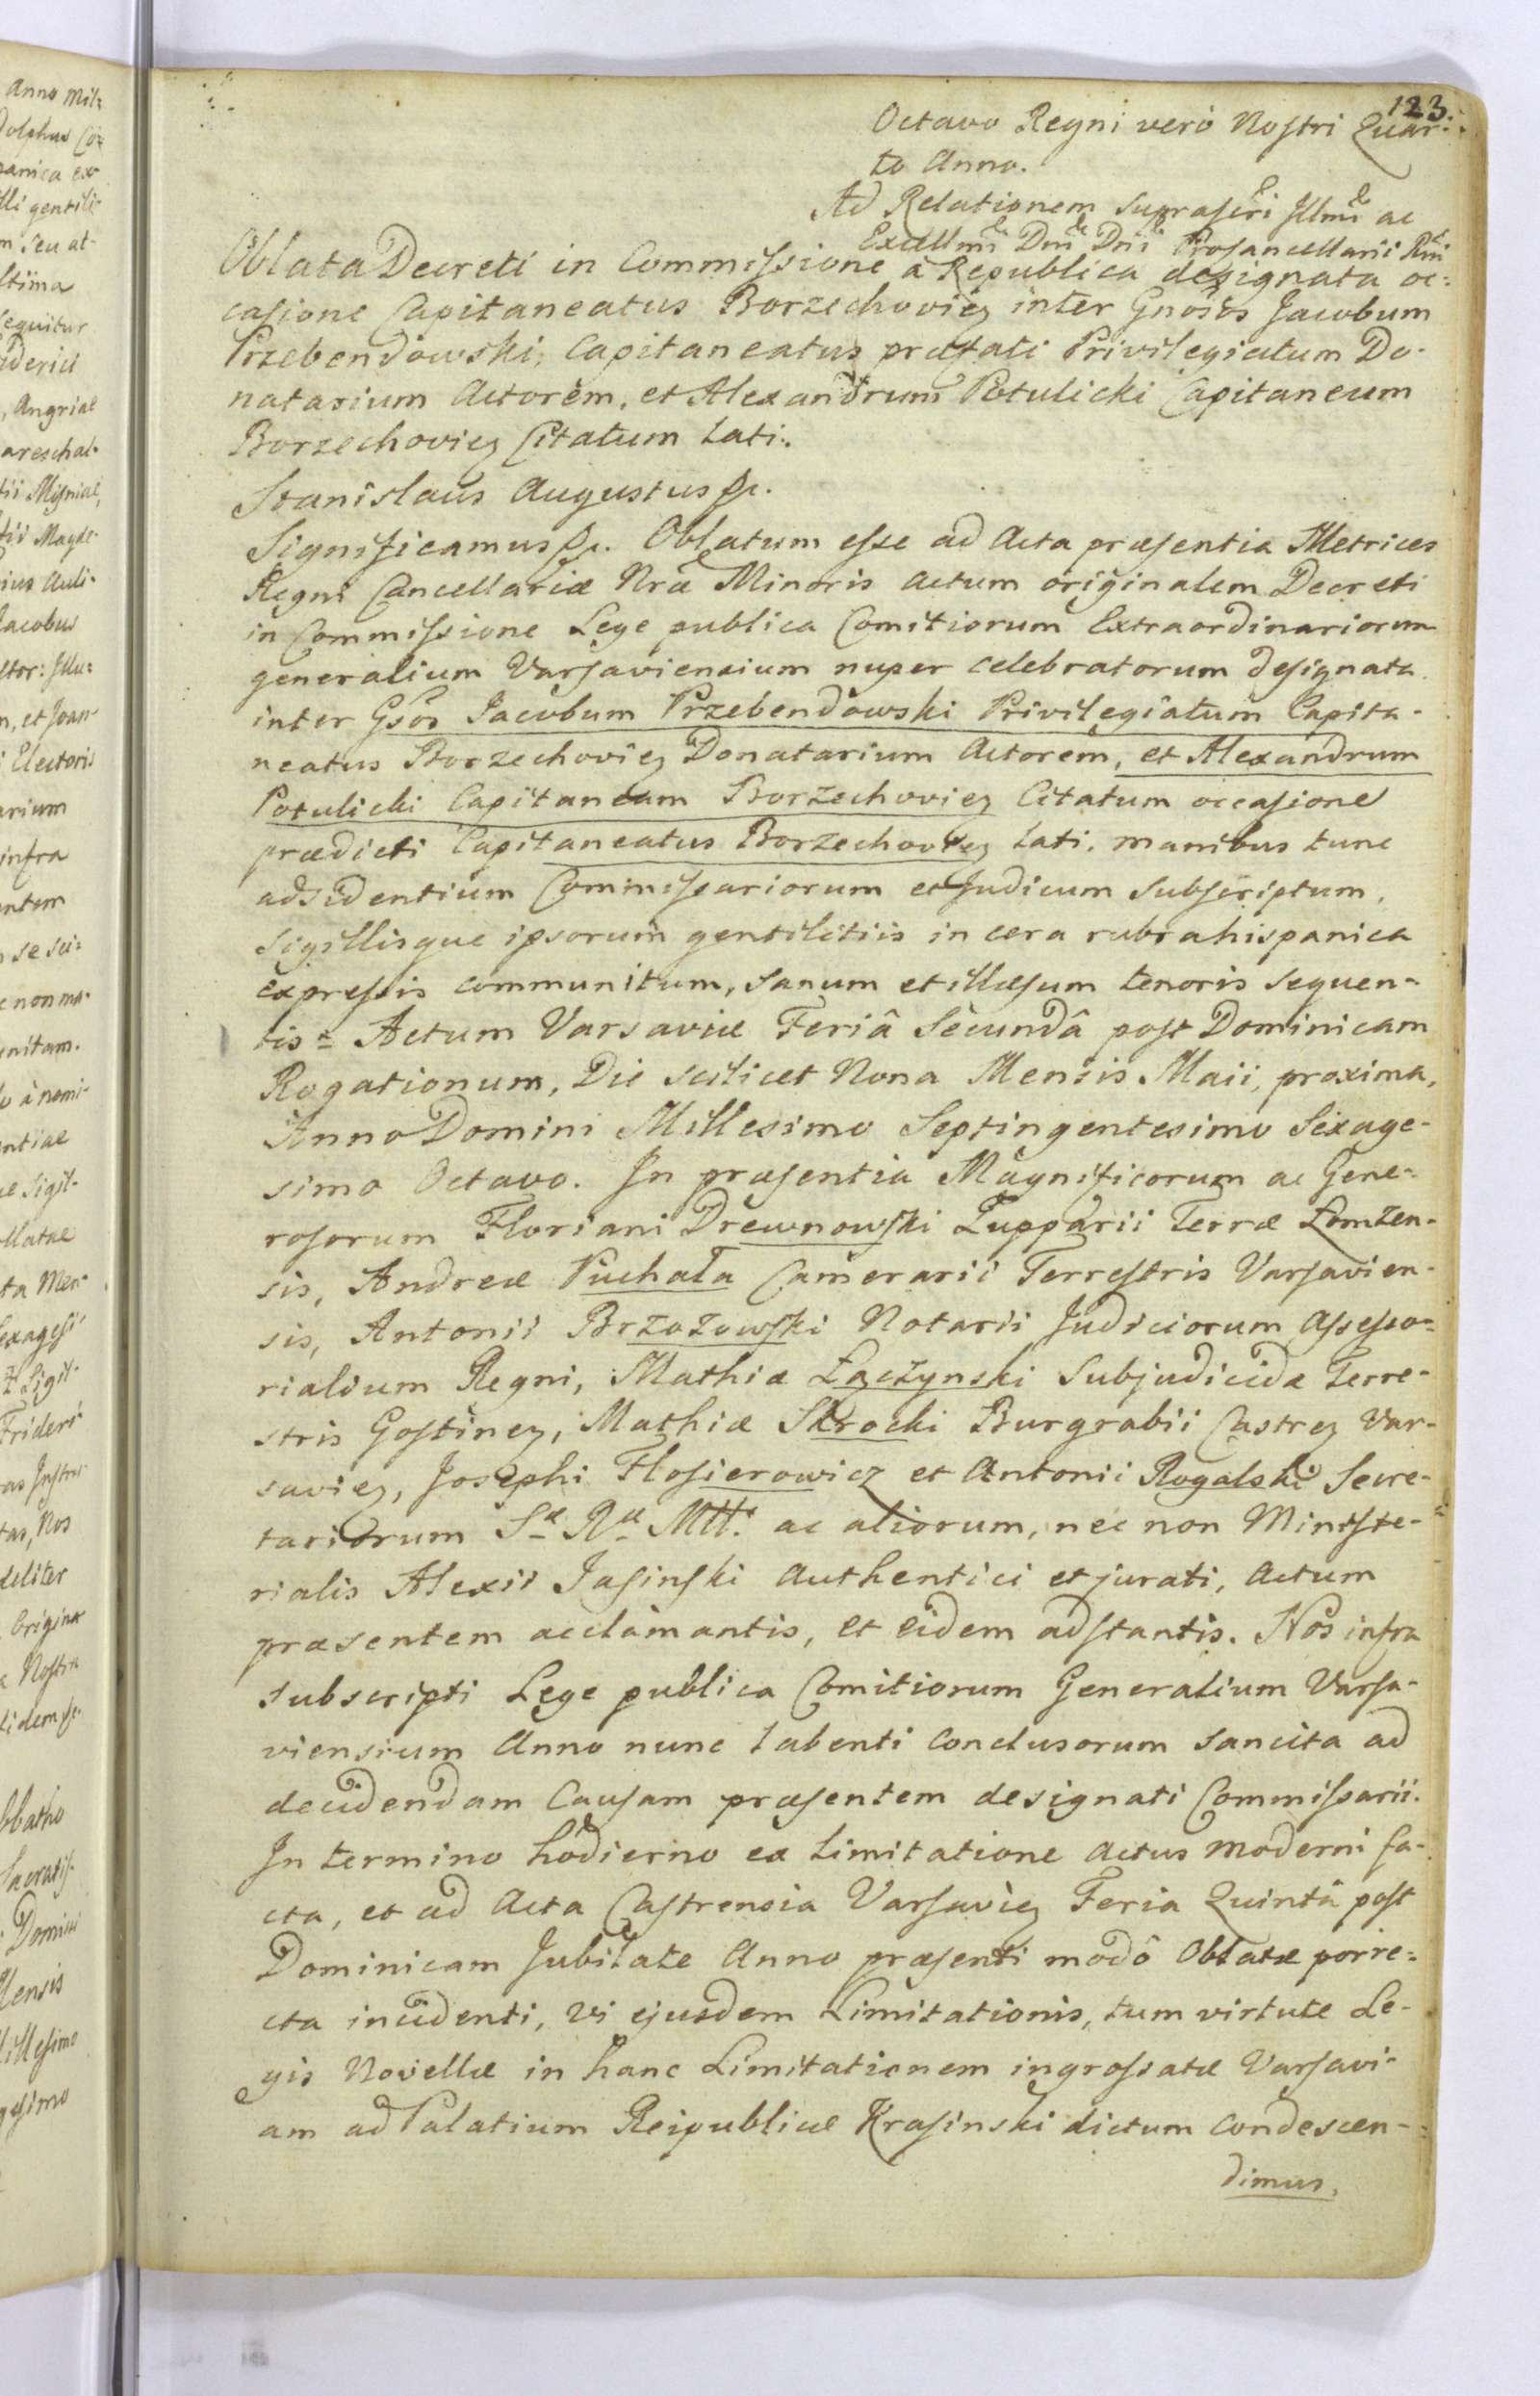 123.
Octavo Regni verò Nostri Quar-
to Anno.
Ad Relationem suprascri Illmi ac
Excellmi Dni Dni Procancellarii Rni
Oblata Decreti in Commissione à Republica designata oc:
casione Capitaneatus Borzechovien inter Gnosos Jacobum
Przebendowski, Capitaneatus præfati Privilegiatum Do-
natarium Actorem, et Alexandrum Potulicki Capitaneum
Borzechovien Citatum lati.
Stanislaus Augustus &c.
Significamus &c. Oblatum esse ad Acta præsentia Metrices
Regni Cancellariæ Nræ Minoris Actum originalem Decreti
in Commissione Lege publica Comitiorum Extraordinariorum
generalium Varsaviensium nuper celebratorum designata
inter Gsos Jacobum Przebendowski Privilegiatum Capita-
neatus Borzechovien Donatarium Actorem, et Alexandrum
Potulicki Capitaneum Borzechovien Citatum occasione
prædicti Capitaneatus Borzechovien lati, manibus tunc
adsidentium Commissariorum et Judicum subscriptum,
sigillisque ipsorum gentilitiis in cera rubra hispanica
expressis communitum, sanum et illæsum tenoris sequen-
tis = Actum Varsaviæ Feriâ Secundâ post Dominicam
Rogationum, Die scilicet Nona Mensis Maii, proxima,
Anno Domini Millesimo Septingentesimo Sexage-
simo Octavo. In præsentia Magnificorum ac Gene-
rosorum Floriani Drewnowski Zupparii Terræ Łomżen-
sis, Andreæ Puchała Camerarii Terrestris Varsavien-
sis, Antonii Brzozowski Notarii Judiciorum Assesso-
rialium Regni, Mathiæ Łączynski Subjudicidæ Terre-
stris Gostinen, Mathiæ Skrocki Burgrabii Castren Var-
savien, Josephi Flosierowicz et Antonii Rogalski Secre-
tariorum Sæ Ræ Mtt. ac aliorum, nec non Ministe-
rialis Alexii Jasinski Authentici et jurati, Actum
præsentem acclamantis, et eidem adstantis. Nos infra
subscripti Lege publica Comitiorum Generalium Varsa-
viensium Anno nunc labenti conclusorum sancita ad
decidendam Causam præsentem designati Commissarii.
In termino hodierno ex limitatione Actus moderni fa-
cta, et ad Acta Castrensia Varsavien Feria Quintâ post
Dominicam Jubilate Anno præsenti modô Oblatæ porre-
cta incidenti, vi ejusdem Limitationis, tum virtute Le-
gis Novellæ in hanc Limitationem ingrossatæ Varsavi-
am ad Palatium Reipublicæ Krasinski dictum condescen-
dimus,